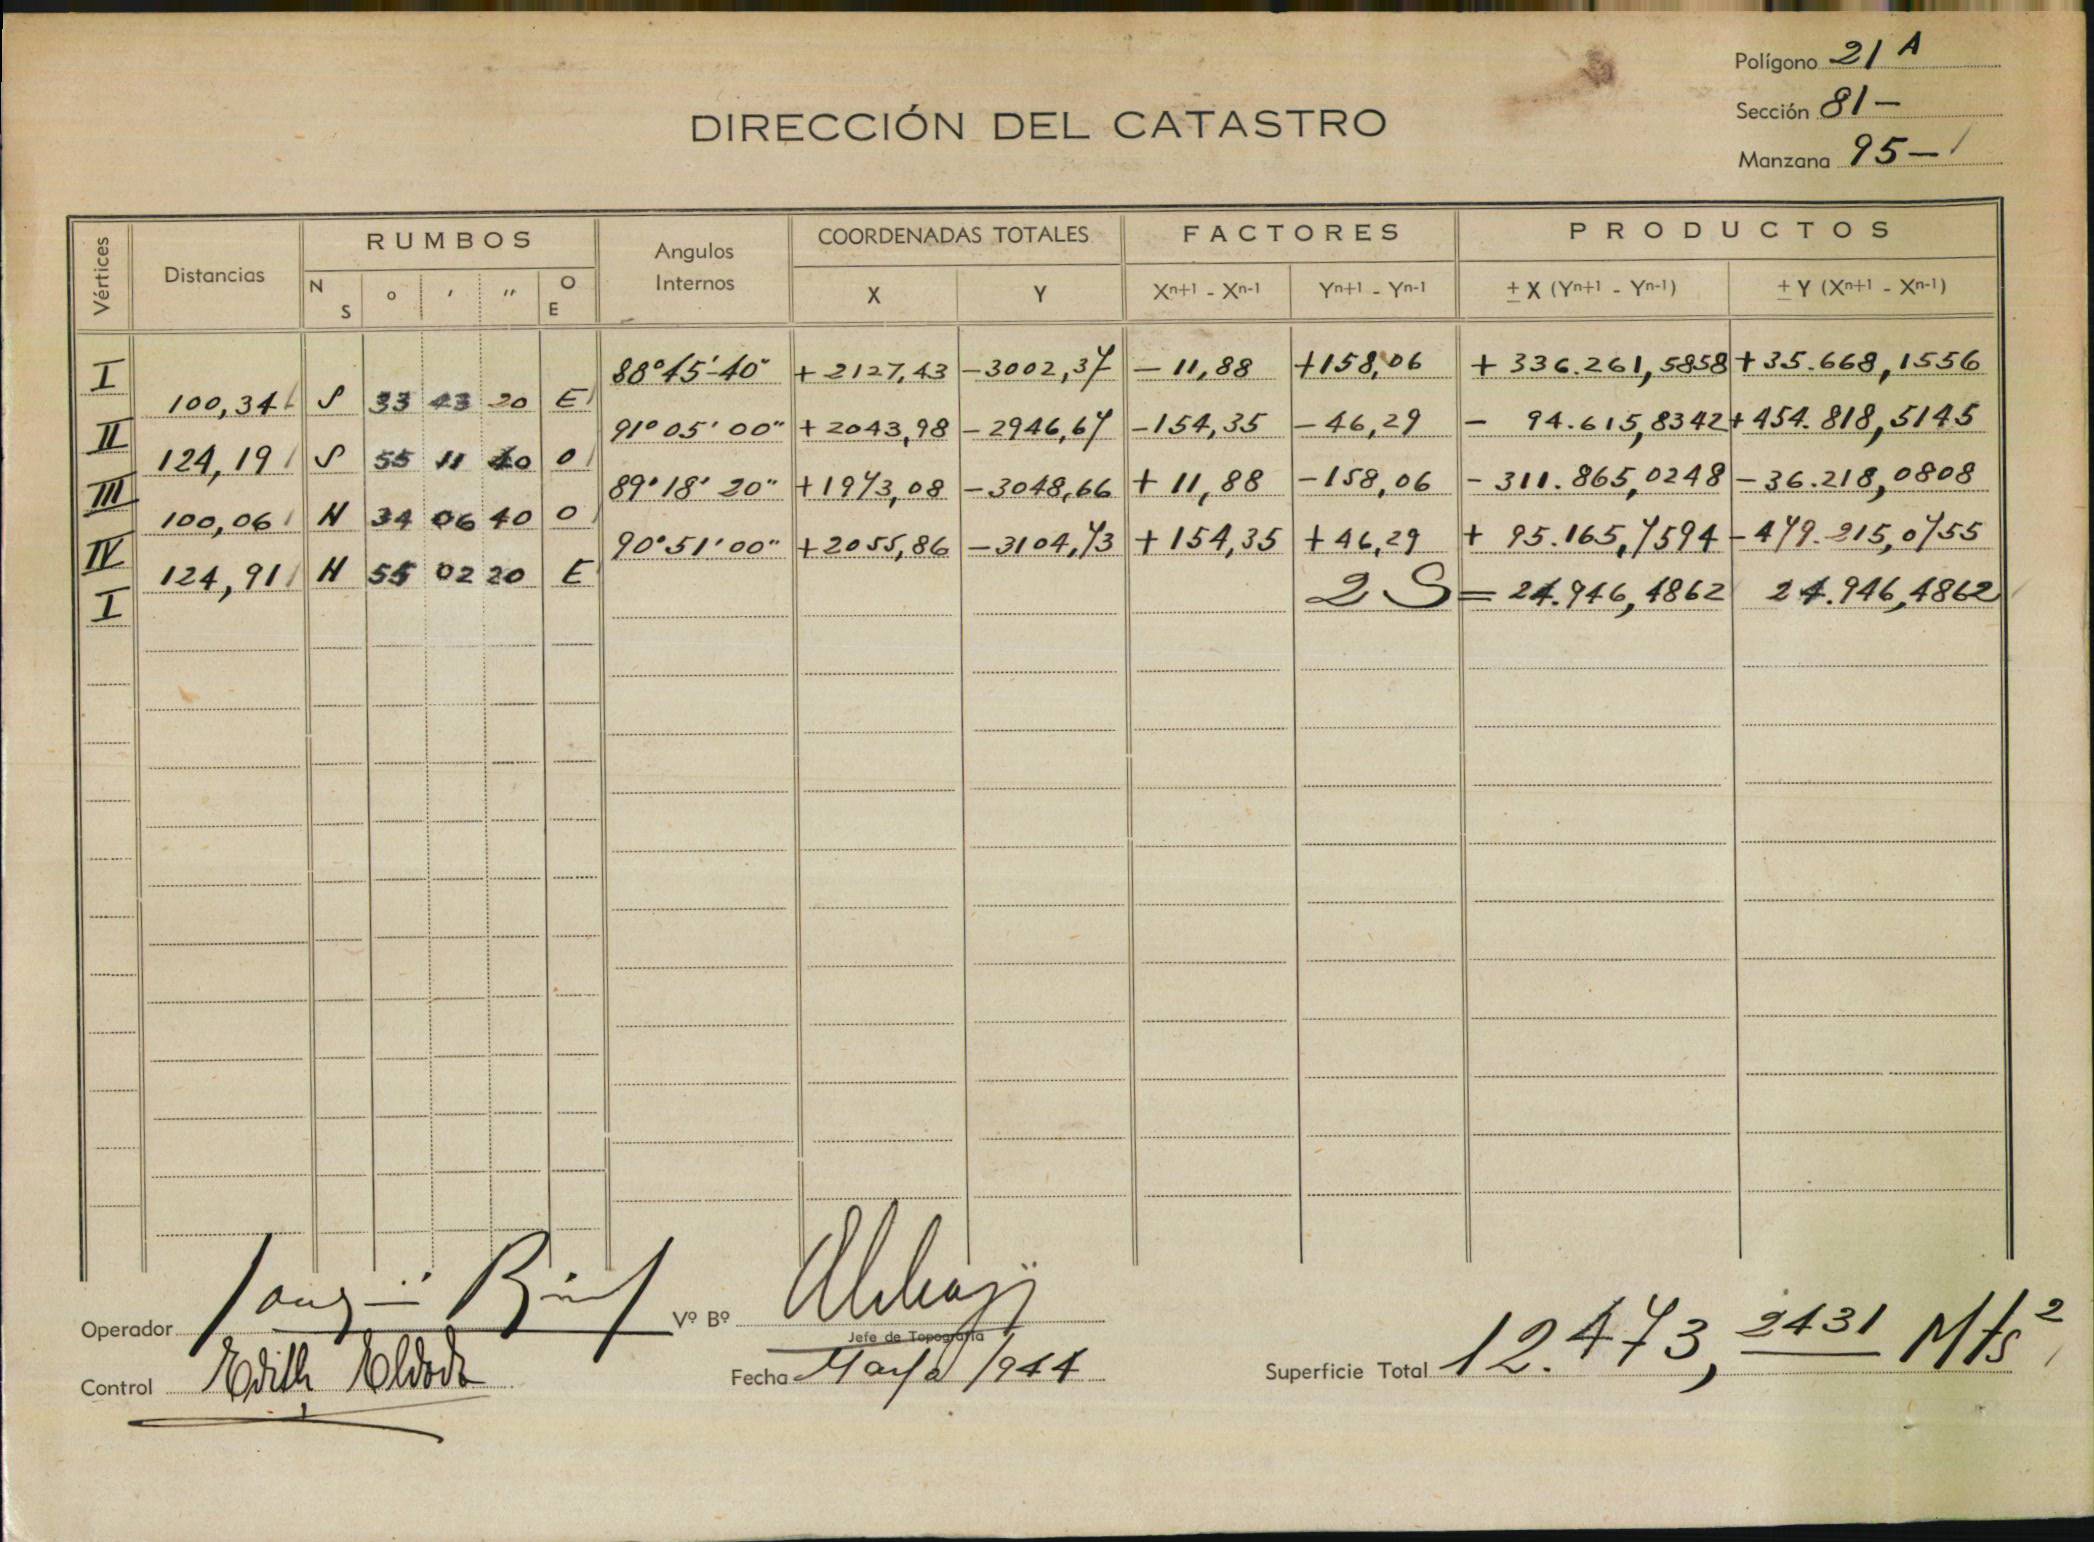 Polígono 21 A
Sección 81-
Manzana 95-
DIRECCIÓN DEL CATASTRO
Vértices Distancias RUMBOS Angulos Internos COORDENADAS TOTALES FACTORES PRODUCTOS
N S o ' '' O E X Y Xn+1 - Xn-1 Yn+1 - Yn-1 ± X (Yn+1 - Yn-1) ± Y (Xn+1 - Xn-1)
I 88°45'-40" +2127,43 -3002,37 -11,88 +158,06 +336.261,5858 +35.668,1556
100,34 S 33 43 20 E
II 91°05'00" +2043,98 -2946,67 -154,35 -46,29 -94.615,8342 +454.818,5145
124,19 S 55 11 40 O
III 89°18'20" +1973,08 -3048,66 +11,88 -158,06 -311.865,0248 -36.218,0808
100,06 N 34 06 40 O
IV 90°51'00" +2055,86 -3104,73 +154,35 +46,29 +95.165,7594 -479.215,0755
124,91 N 55 02 20 E
I 2 S = 24.946,4862 24.946,4862
Operador
Vº Bº
Jefe de Topografía
Control Edith
Fecha 1944
Superficie Total 12.473,2431 Mts2